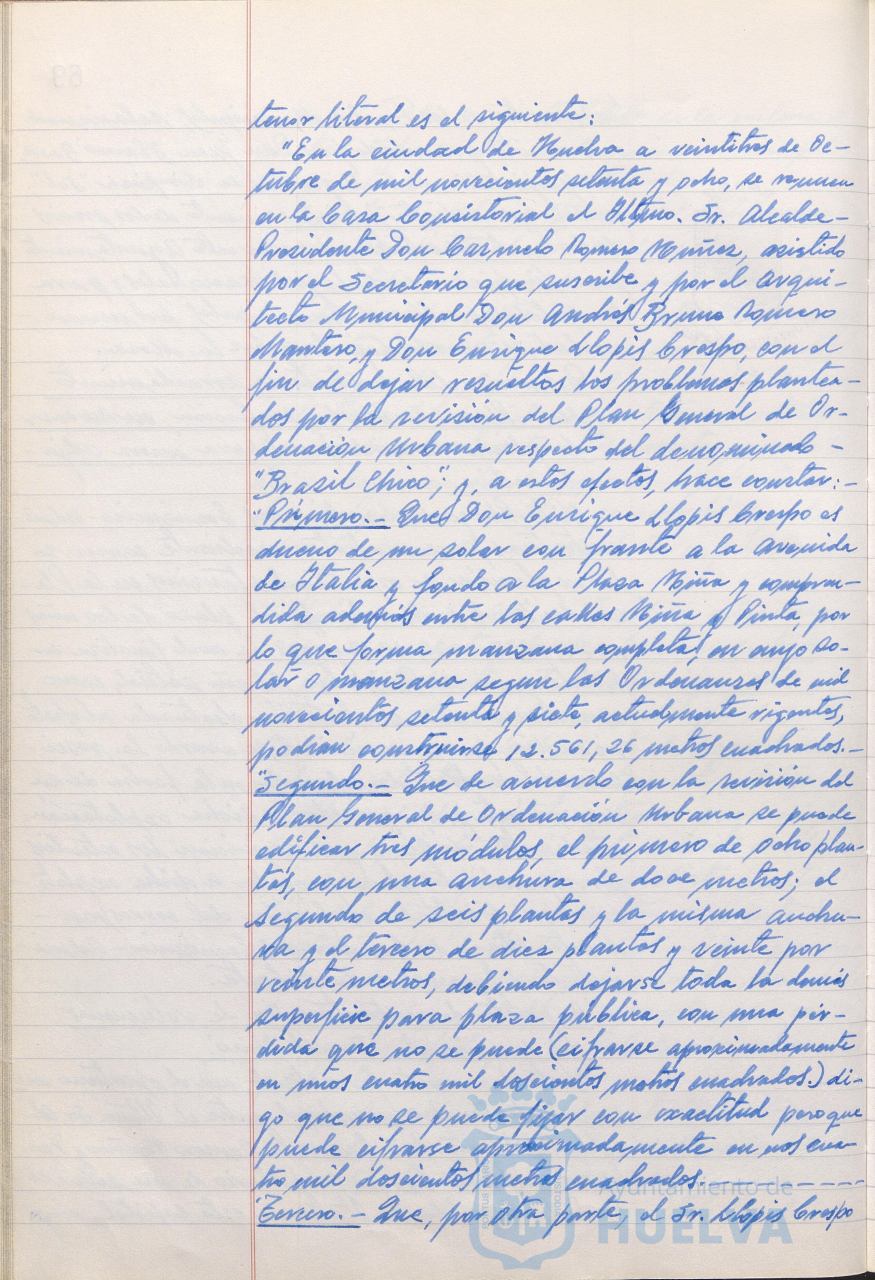 tenor literal es el siguiente:
"En la ciudad de Huelva a veintitres de Oc-
tubre de mil novecientos setenta y ocho, se reunen
en la Casa Consistorial el Iltmo. Sr. Alcalde-
Presidente Don Carmelo Romero Núñez, asistido
por el Secretario que suscribe y por el Arqui-
tecto Municipal Don Andrés Bruno Romero
Mantero, y Don Enrique Llopis Crespo, con el
fin de dejar resueltos los problemas plantea-
dos por la revisión del Plan General de Or-
denación Urbana respecto del denominado -
"Brazil Chico"; y, a estos efectos, hace constar:-
"Primero.- Que Don Enrique Llopis Crespo es
dueño de un solar con frente a la Avenida
de Italia y fondo a la Plaza Niña y compren-
dida además entre las calles Niña y Pinta, por
lo que forma manzana completa, en cuyo so-
lar o manzana segun las Ordenanzas de mil
novecientos setenta y siete, actualmente vigentes,
podian construirse 12.561,26 metros cuadrados.-
"Segundo.- Que de acuerdo con la revisión del
Plan General de Ordenación Urbana se puede
edificar tres módulos, el primero de ocho plan-
tas, con una anchura de doce metros; el
segundo de seis plantas y la misma anchu-
ra y el tercero de diez plantas y veinte por
veinte metros, debiendo dejarse toda la demás
superficie para plaza publica, con una pér-
dida que no se puede (cifrarse aproximadamente
en unos cuatro mil doscientos metros cuadrados.) di-
go que no se puede fijar con exactitud pero que
puede cifrarse aproximadamente en unos cua-
tro mil doscientos metros cuadrados.- - - - - - -
"Tercero.- Que, por otra parte, el Sr. Llopis Crespo
Ayuntamiento de
HUELVA